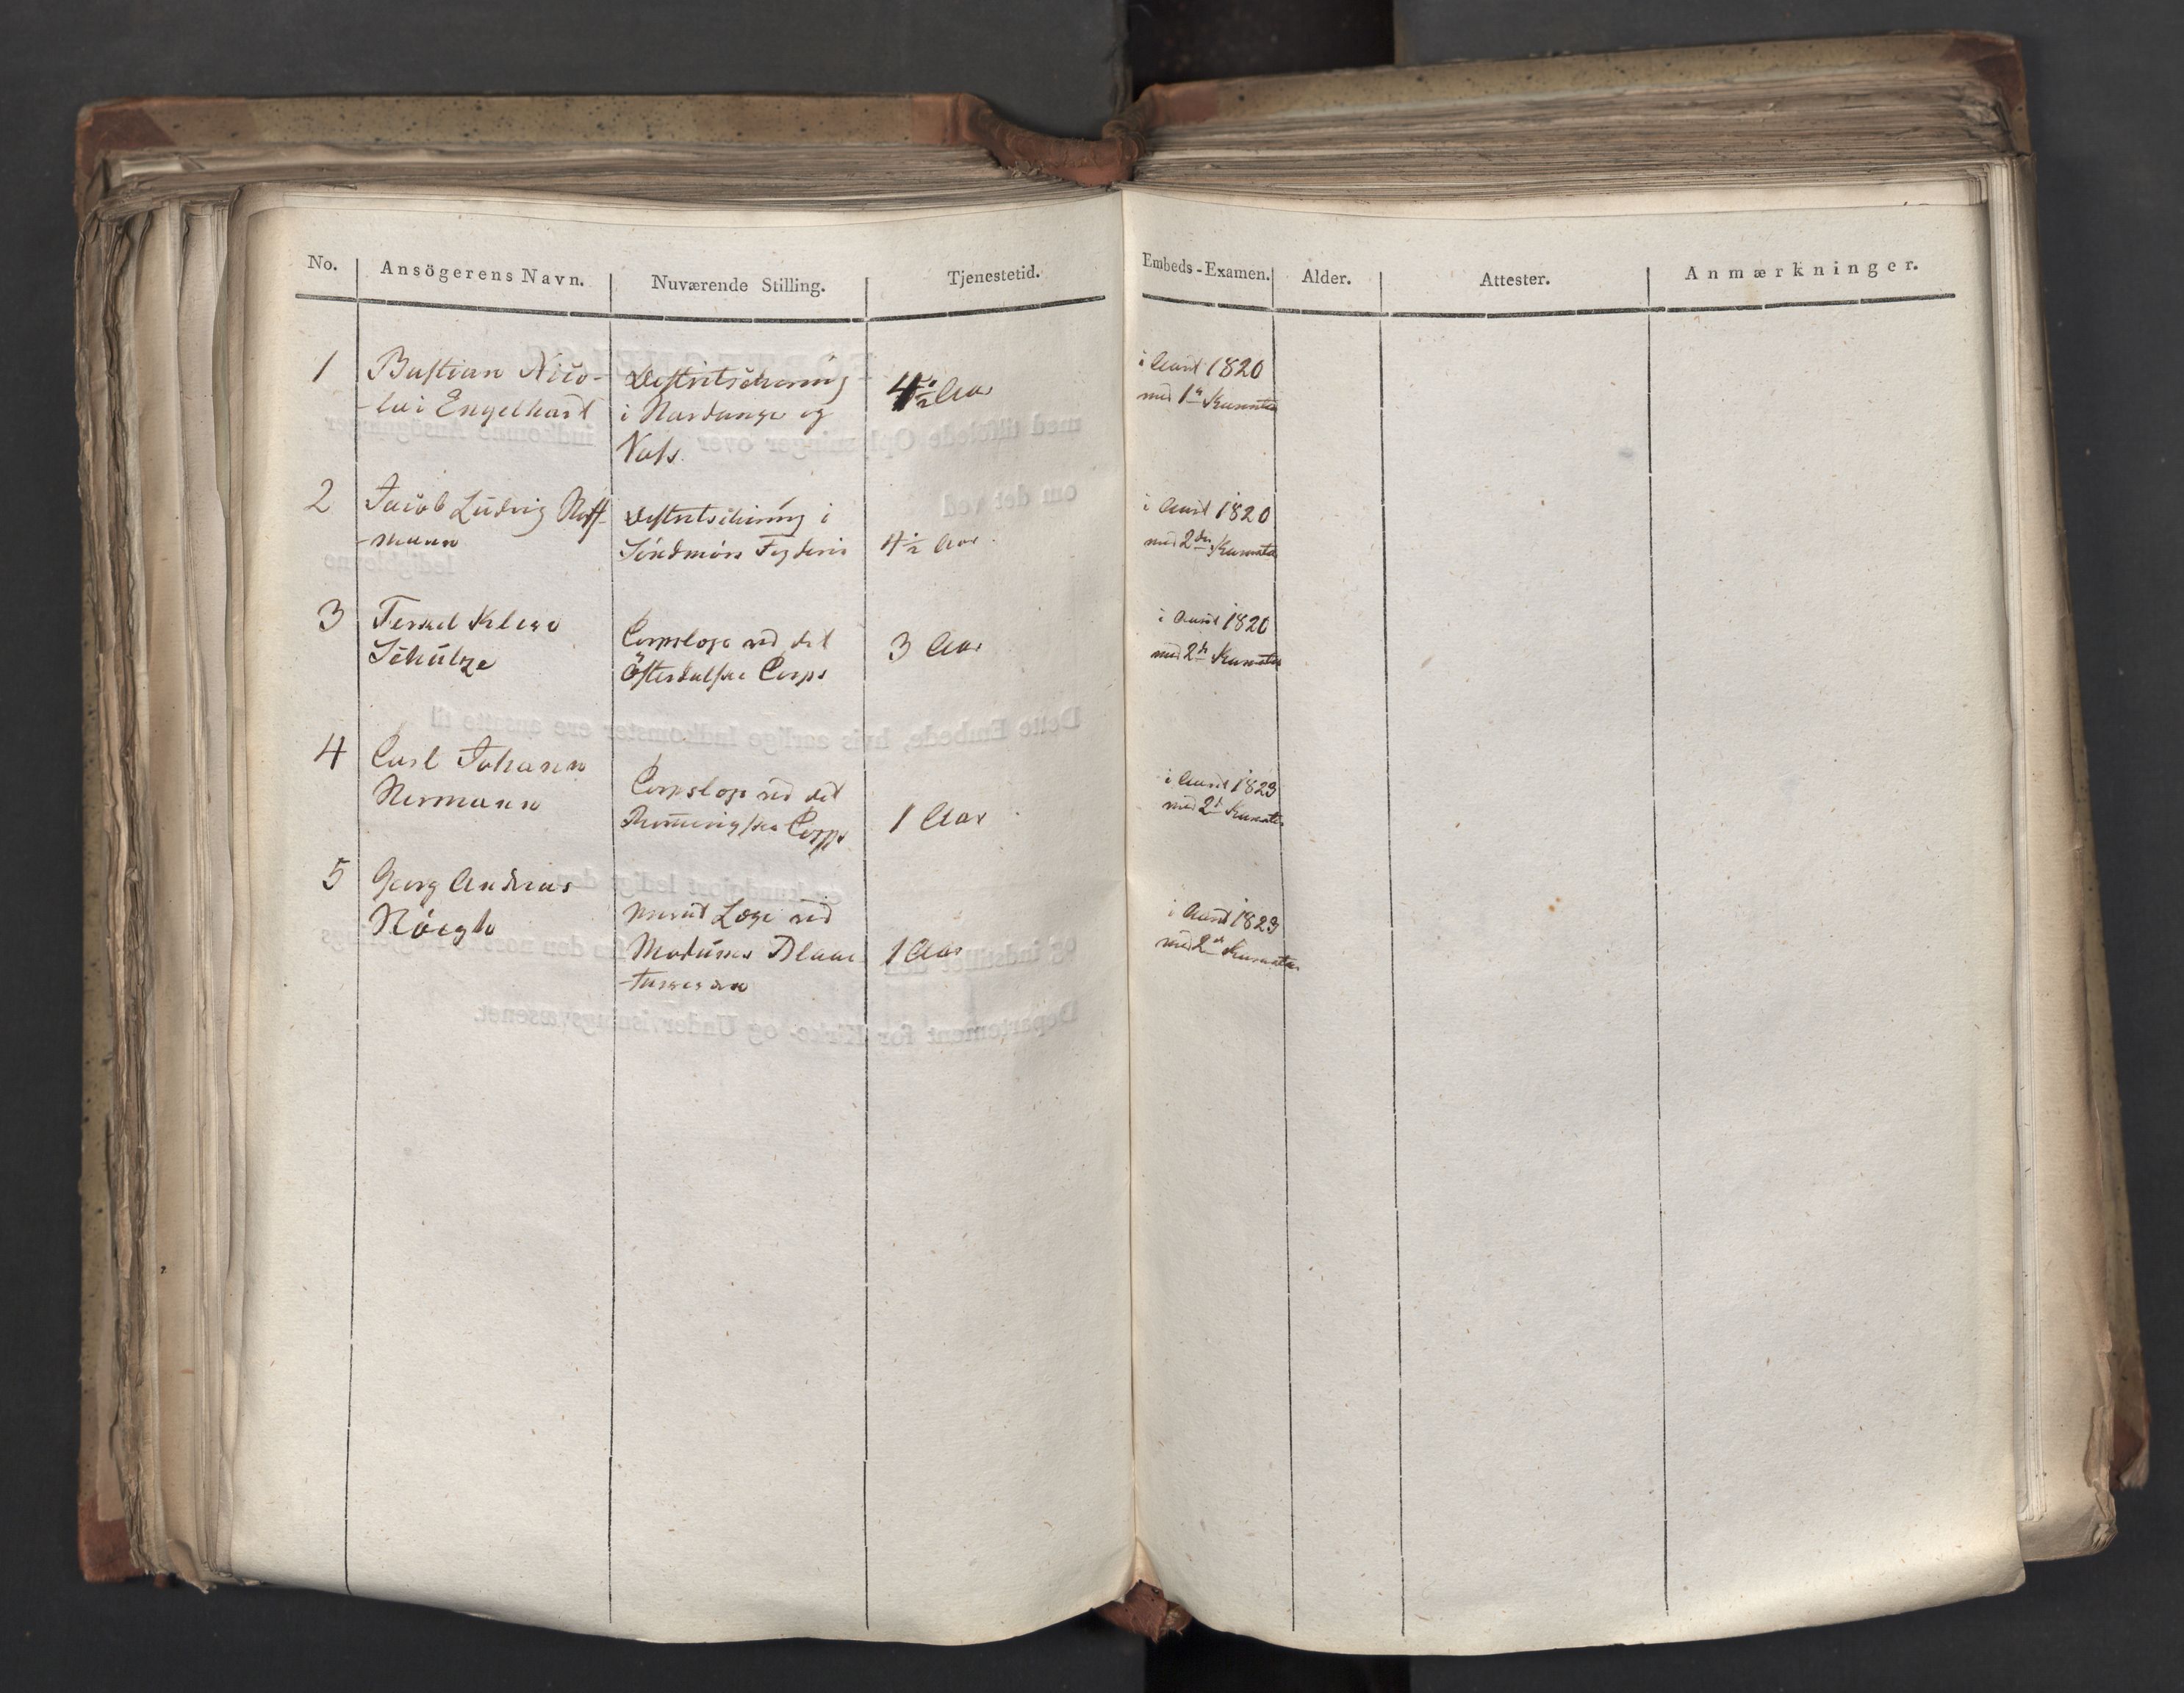 No. Ansögerens Navn. Nuværende Stilling. Tjenestetid. Embeds-Examen. Alder. Attester. Anmærkninger.
1 Bastian Nico-
-lai Engelhart
Destrictschirurg
i Hardanger og
Vos.
4½ Aar
i Aaret 1820
med 1ste Karacter
2 Jacob Ludvig Hoff-
-mann
Destrictschirurg i
Söndmörs Fogderie
4½ Aar
i Aaret 1820
med 2den Karacter
3
Schultze
Corpslæge ved det
Österdalske Corps
3 Aar
i Aaret 1820
med 2den Karacter
4 Carl Johann
Hermann
Corpslæge ved det
Corps
1 Aar
i Aaret 1823
med 2den Karacter
5 Georg Andreas
Höegh
Læge ved
Modums Blaae
1 Aar
i Aaret 1823
med 2den Karacter